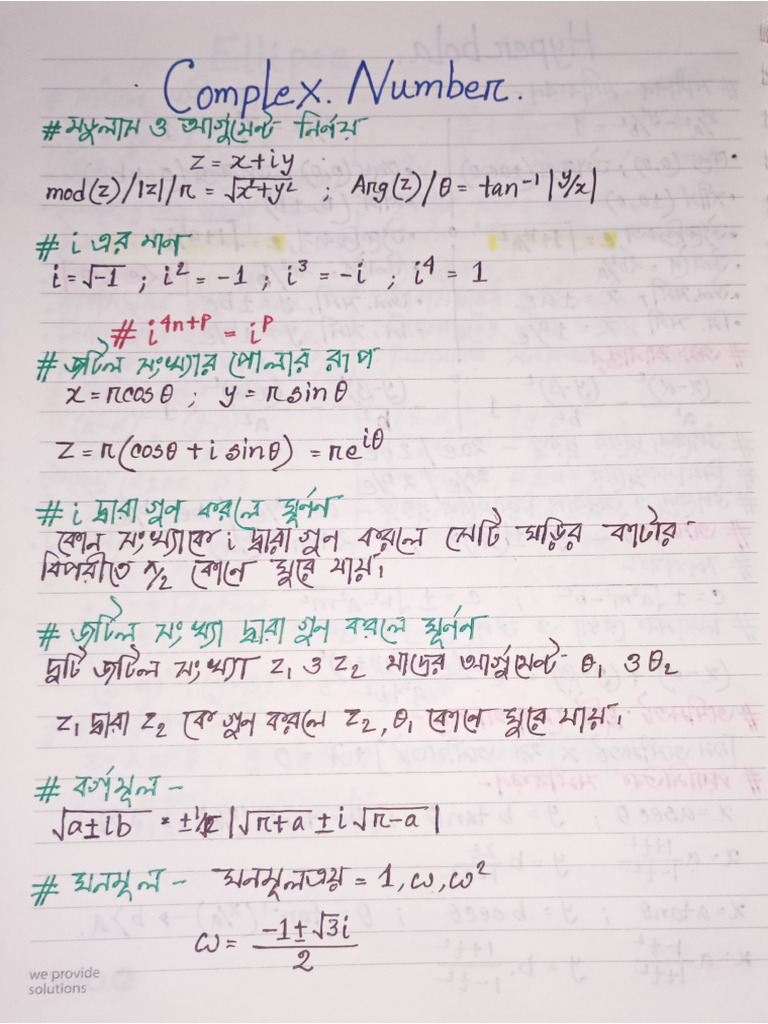 Complex. Number.
# মডুলাস ও আর্গুমেন্ট নির্নয়
z = x+iy
mod(z)/|z|/r = √x²+y² ; Arg(z)/θ = tan⁻¹|y/x|
# i এর মান
i = √-1 ; i² = -1 ; i³ = -i ; i⁴ = 1
# i⁴ⁿ⁺ᵖ = iᵖ
# জটিল সংখ্যার পোলার রূপ
x = rcosθ ; y = r sinθ
z = r(cosθ + i sinθ) = re^iθ
# i দ্বারা গুন করলে ঘূর্নন
কোন সংখ্যাকে i দ্বারা গুন করলে সেটি ঘড়ির কাটার
বিপরীতে π/2 কোনে ঘুরে যায়।
# জটিল সংখ্যা দ্বারা গুন করলে ঘূর্নন
দুটি জটিল সংখ্যা z₁ ও z₂ যাদের আর্গুমেন্ট θ₁ ও θ₂
z₁ দ্বারা z₂ কে গুন করলে z₂, θ₁ কোনে ঘুরে যায়।
# বর্গমূল -
√a±ib = ±1/√2 |√r+a ± i√r-a|
# ঘনমূল - ঘনমূলত্রয় = 1, ω, ω²
ω = -1±√3i / 2
we provide
solutions